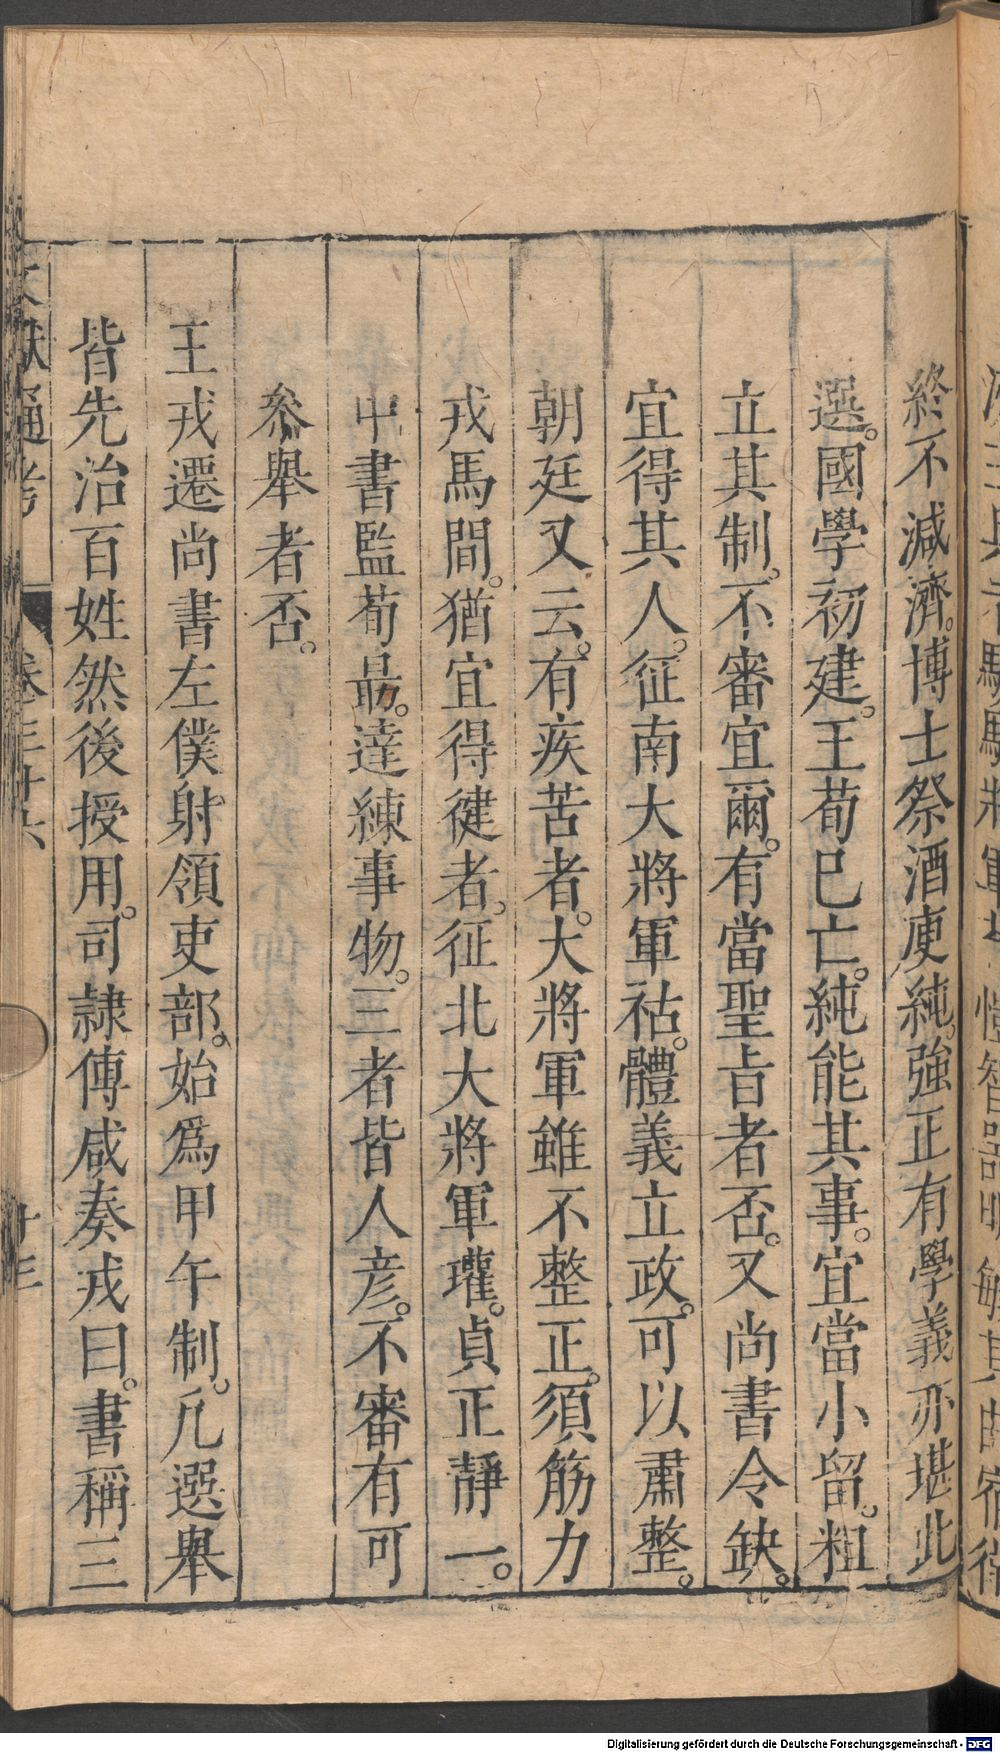 終不減濟。博士祭酒庾純。強正有學義亦堪此
選。國學初建。王荀已亡。純能其事。宜當小留。粗
立其制。不審宜爾。有當聖㫖者否。又尚書令缺。
宜得其人。征南大將軍祜。體義立政。可以肅整。
朝廷又云。有疾苦者。大將軍雖不整正。須筋力
戎馬間。猶宜得健者。征北大將軍瓘。貞正靜一。
中書監荀勗。達練事物。三者皆人彦。不審有可
叅舉者否。
王戎遷尚書左僕射領吏部。始爲甲午制。凡選舉
皆先治百姓然後授用。司隷傅咸奏戎曰。書稱三
文獻通考 卷三十六
Digitalisierung gefördert durch die Deutsche Forschungsgemeinschaft - DFG